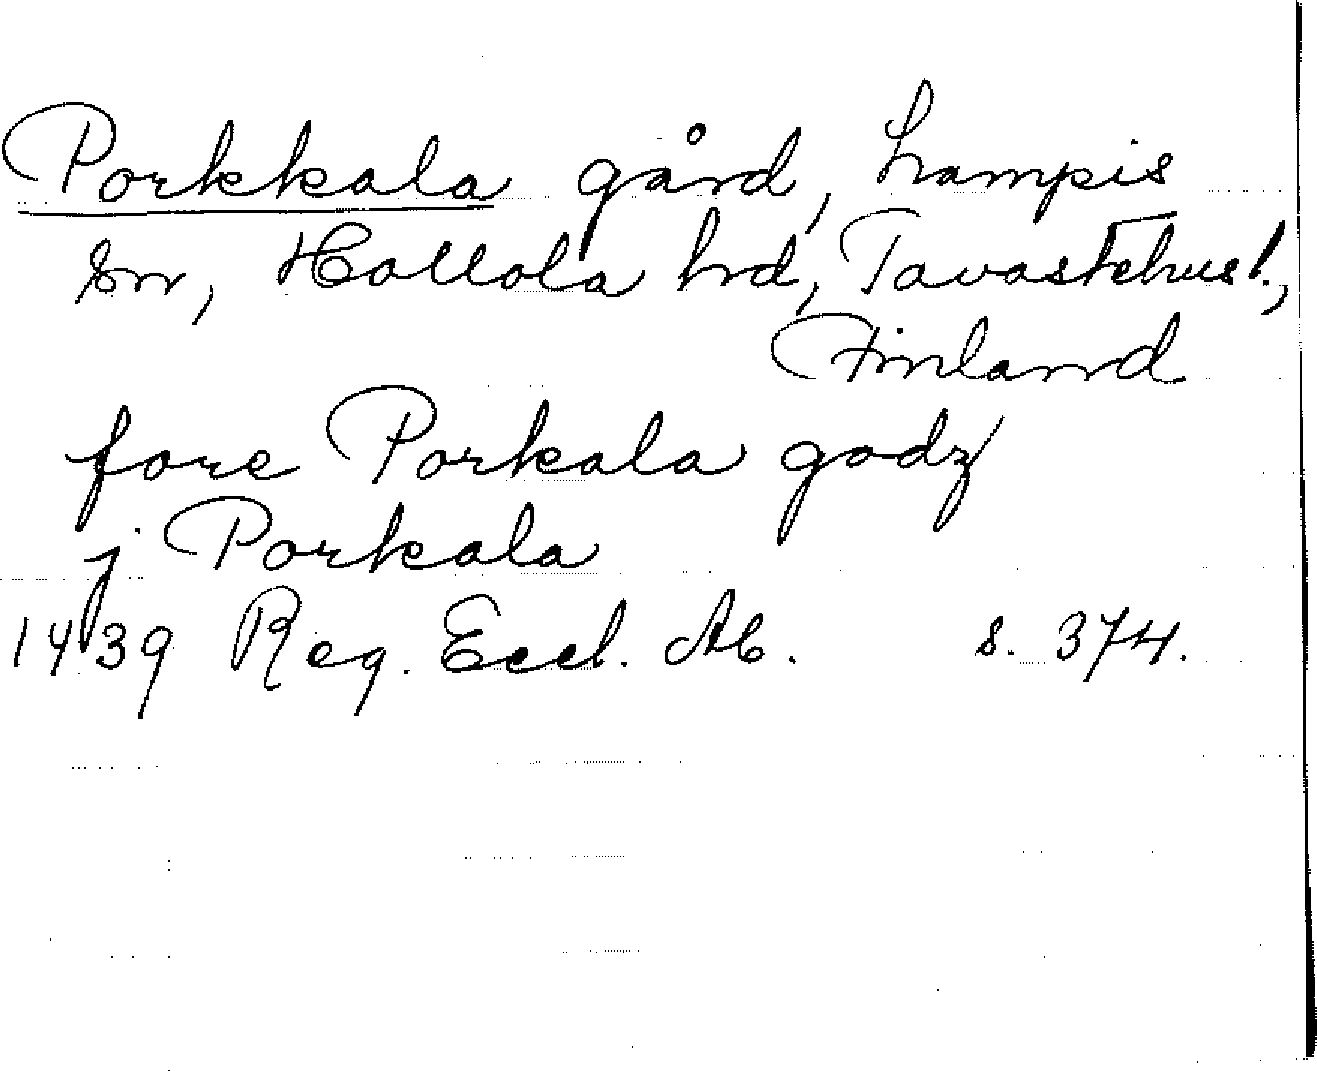 Porkkala gård, Lampis
sn, Hollola hrd, Tavastehusl.,
Finland
fore Porkala godz
j Porkala
1439 Reg. Eccl. Ab. s. 374.